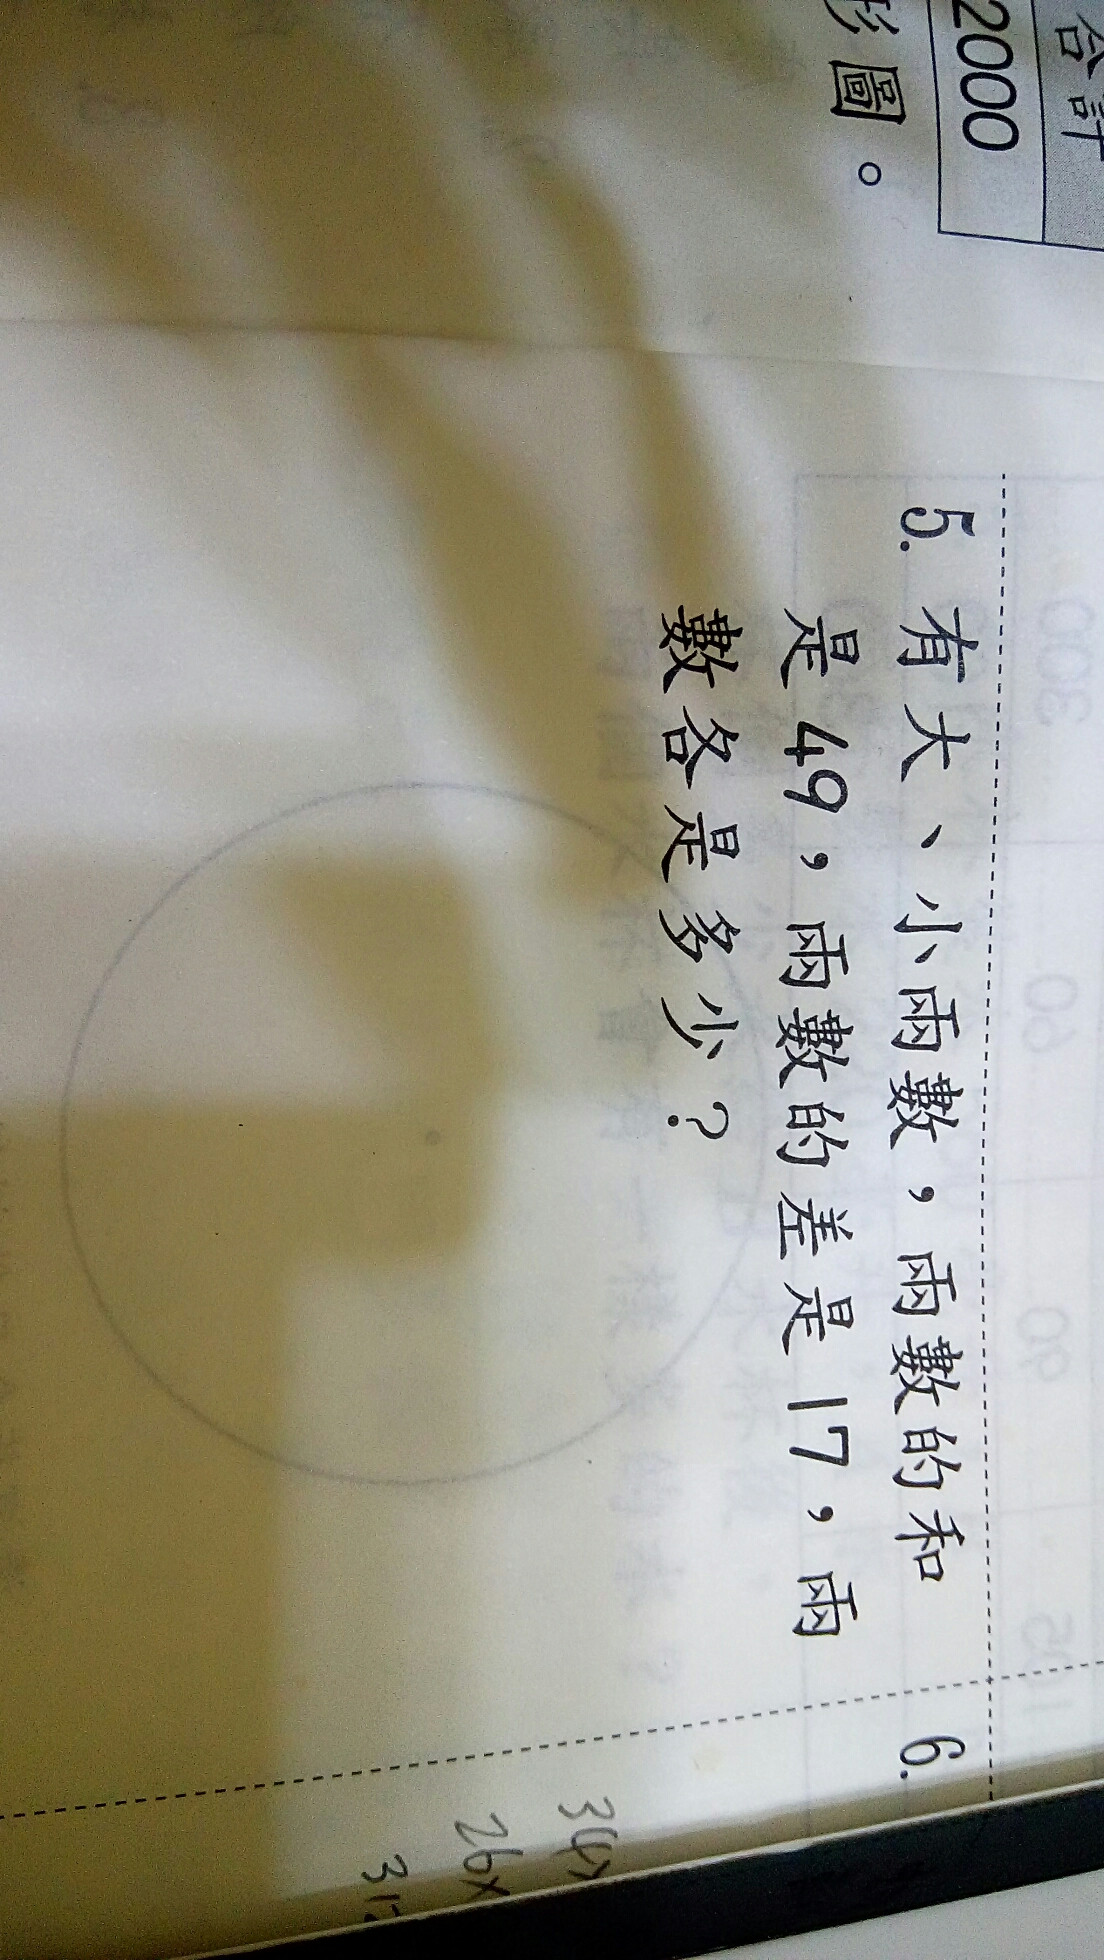 合計
2000
形圖。
5. 有大、小兩數，兩數的和
是 49，兩數的差是 17，兩
數各是多少？
6.
34×
26×
312